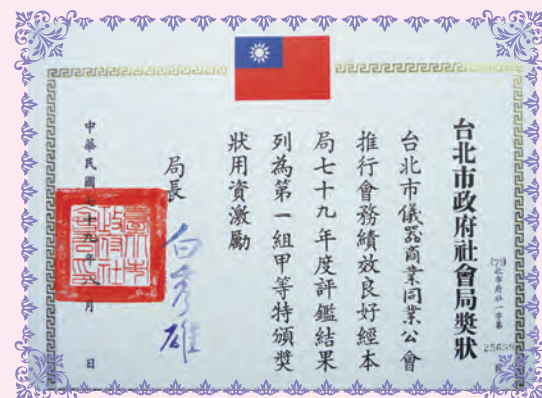 台北市政府社會局獎狀
(79)北市府社一字第
號
台北市儀器商業同業公會
推行會務績效良好經本
局七十九年度評鑑結果
列為第一組甲等特頒獎
狀用資激勵
局長 白秀雄
中華民國七十九年 月 日